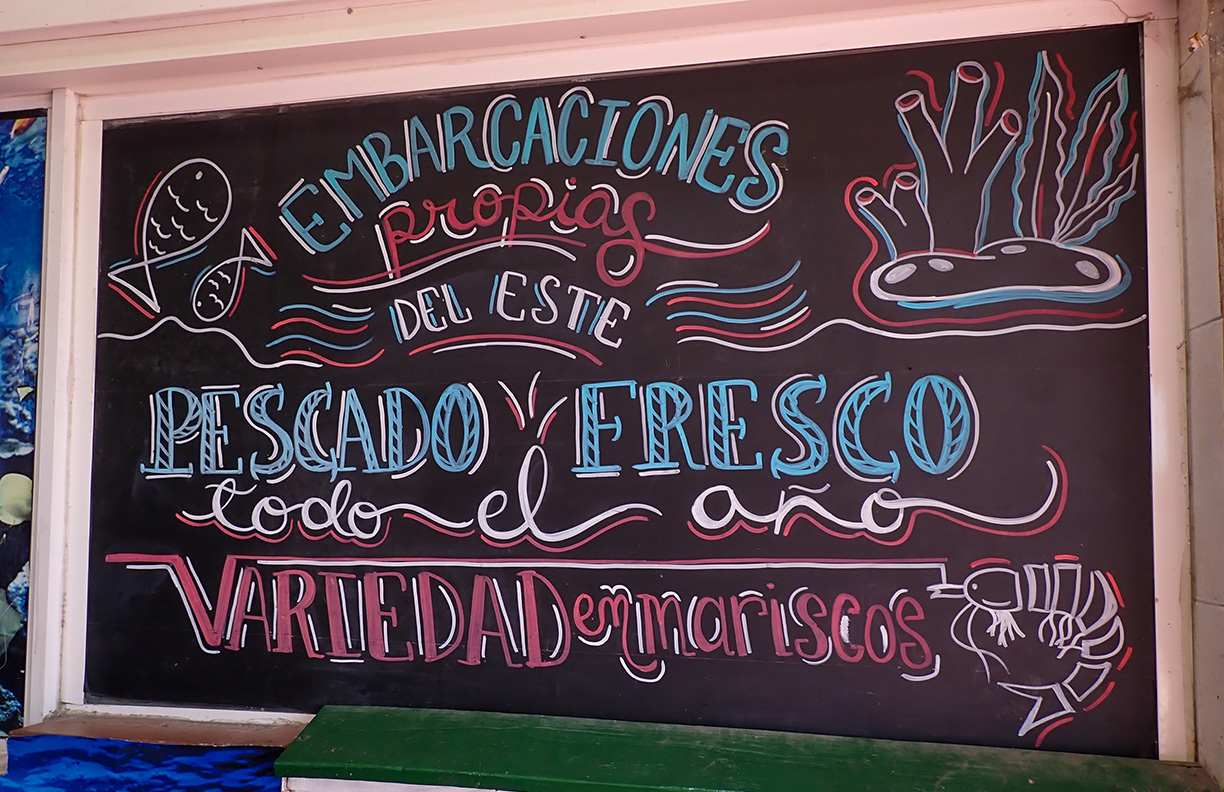 EMBARCACIONES
propias
DEL ESTE
PESCADO FRESCO
todo el año
VARIEDAD en mariscos